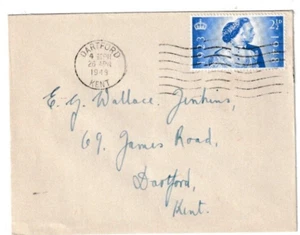 DARTFORD
KENT
2½D
E. G. Wallace Jenkins,
69, James Road,
Dartford,
Kent.